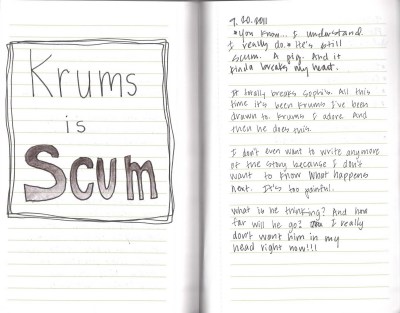 Krums
is
Scum
9.20.2011
*You know... I understand.
I really do.* He's still
scum. A pig. And it
kinda breaks my heart.
It totally breaks Sophi's. All this
time it's been Krums I've been
drawn to. Krums I adore. And
then he does this.
I don't even want to write anymore
of the story because I don't
want to know what happens
next. It's too painful.
What is he thinking? And how
far will he go? I really
don't want him in my
head right now!!!